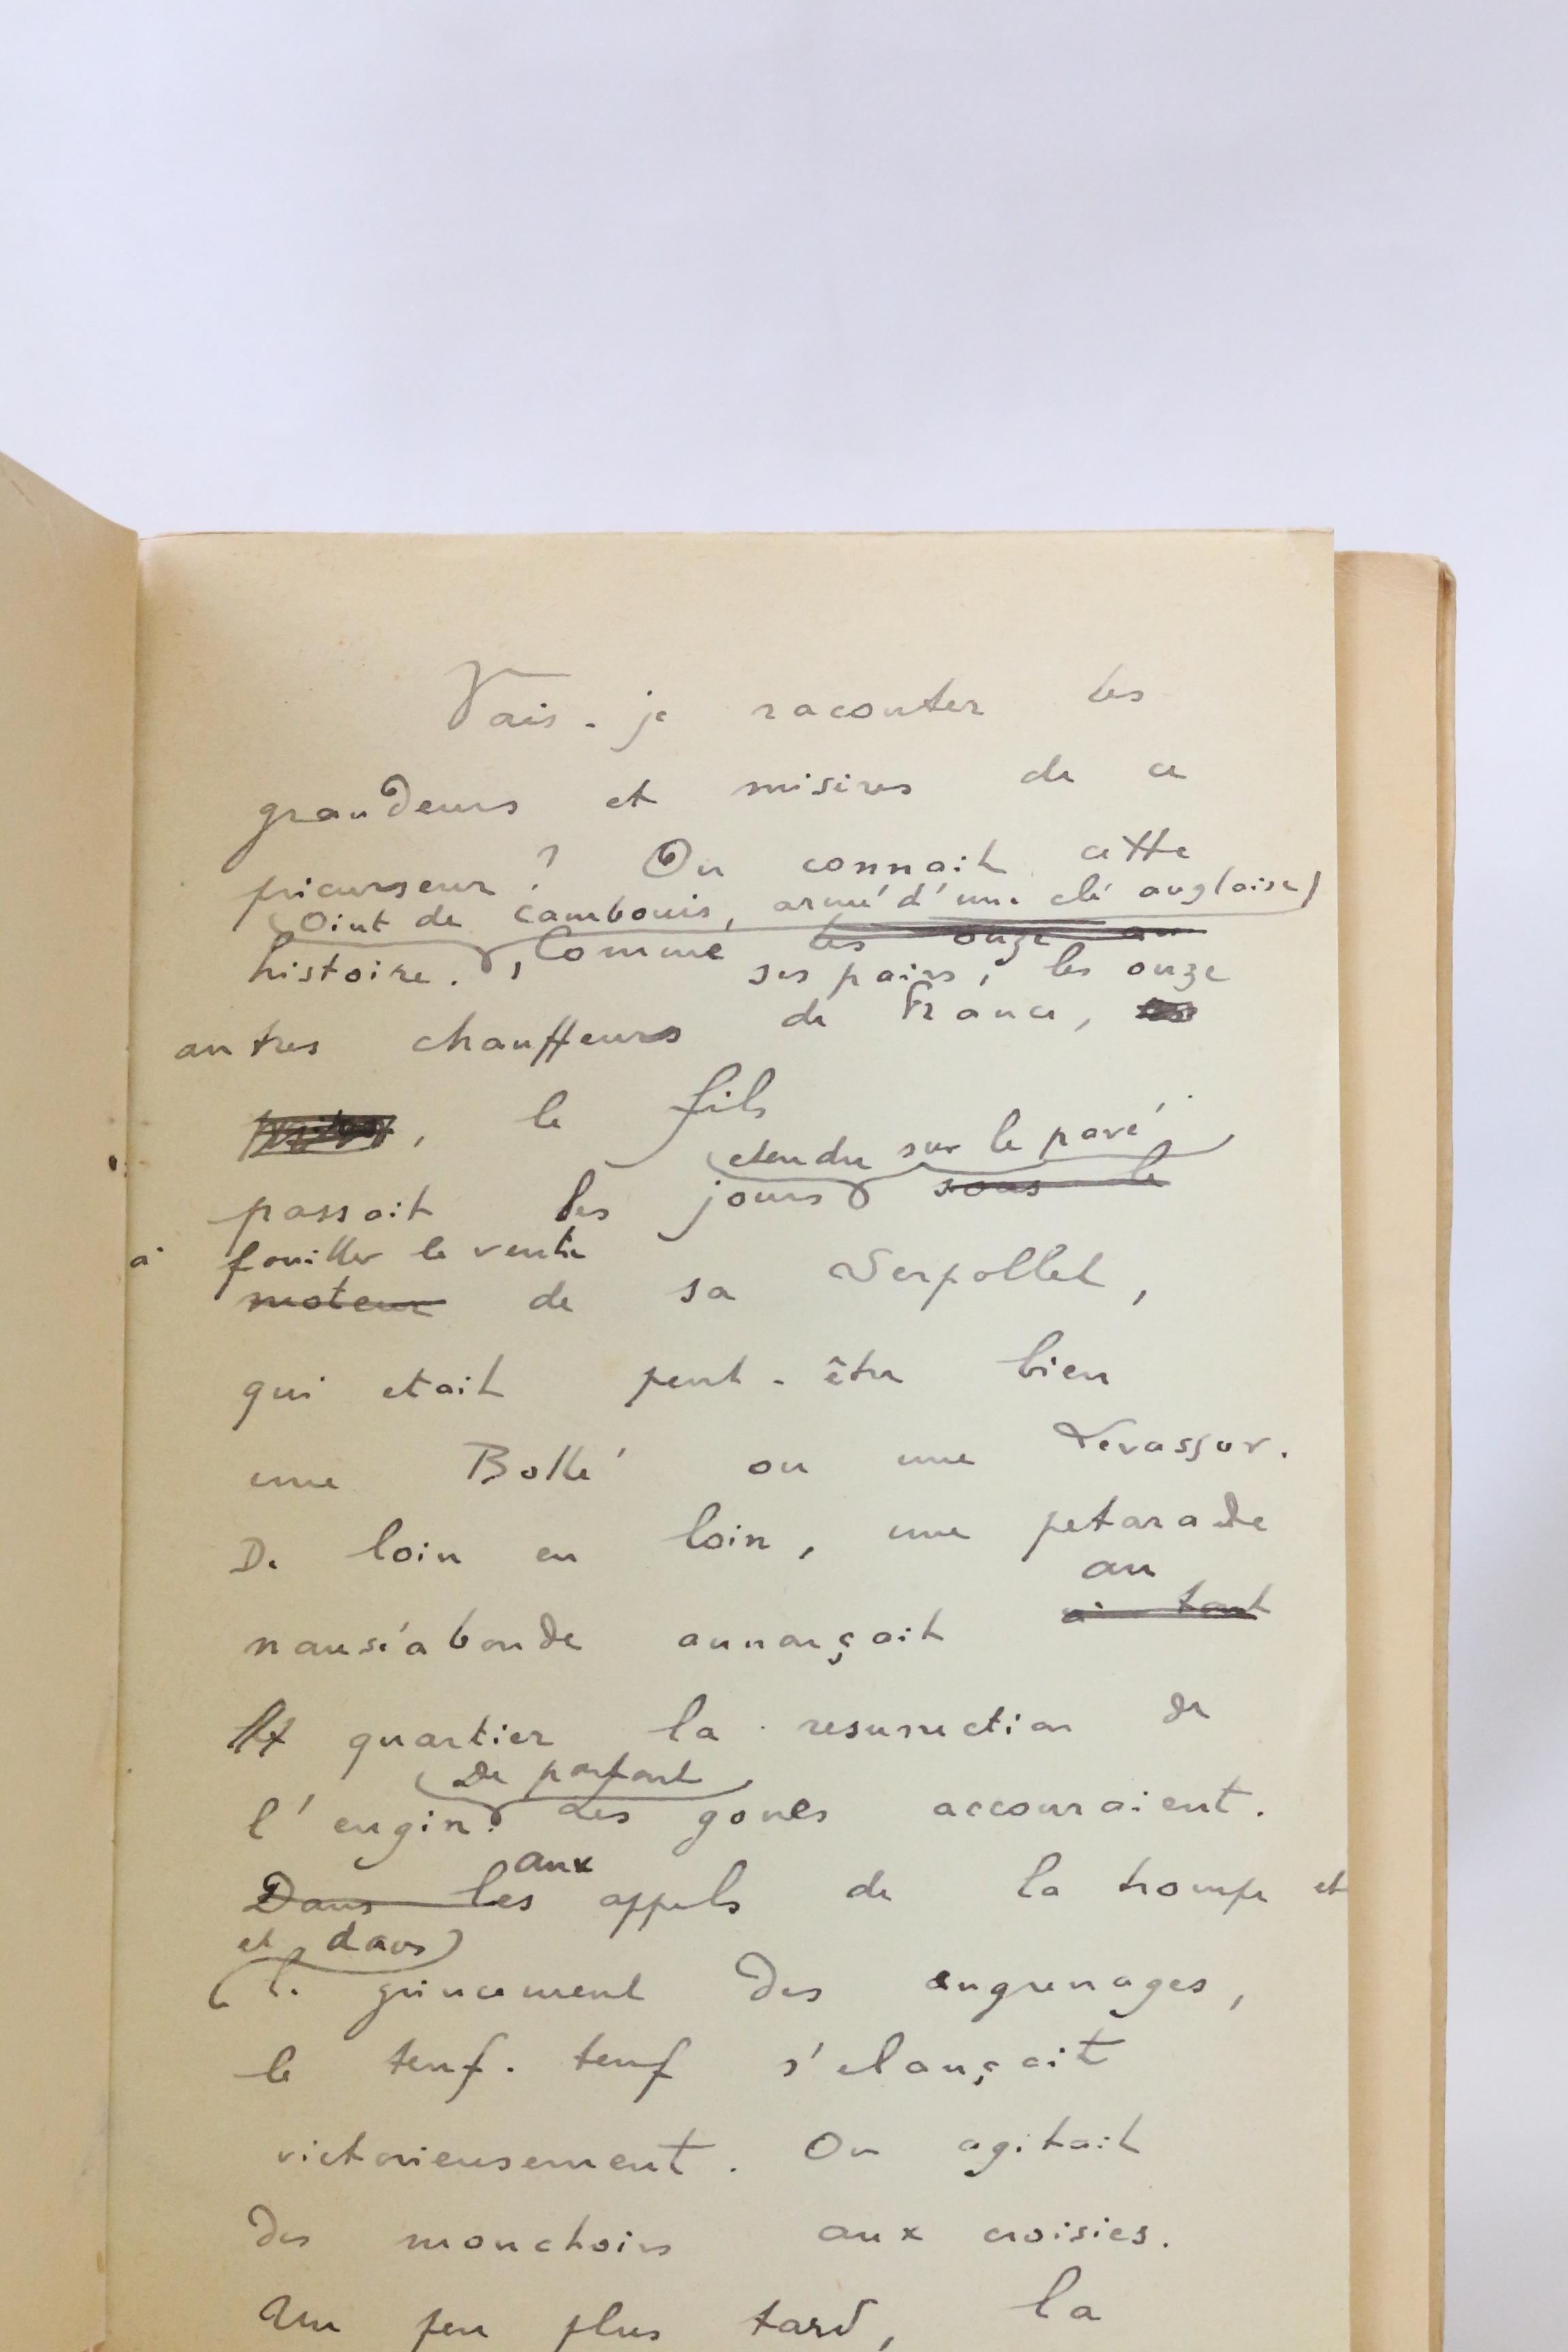 Vais-je raconter les
grandeurs et misères de ce
précurseur ? On connait cette
Oint de cambouis, armé d'une clé anglaise
les onze au
histoire. , Comme ses pairs, les onze
autres chauffeurs de France,
, le fils
etendu sur le pavé,
passait les jours sous le
à fouiller le ventre
moteur de sa Serpollet,
qui etait peut-être bien
une Bollé ou une Levassor.
De loin en loin, une petarade
au
nauséabonde annonçait à tout
quartier la resurrection de
De partout
l'engin. Les gones accouraient.
aux
Dans les appels de la trompe et
et dans
le grincement des engrenages,
le teuf-teuf s'elançait
victorieusement. On agitait
des mouchoirs aux croisées.
Un peu plus tard, la